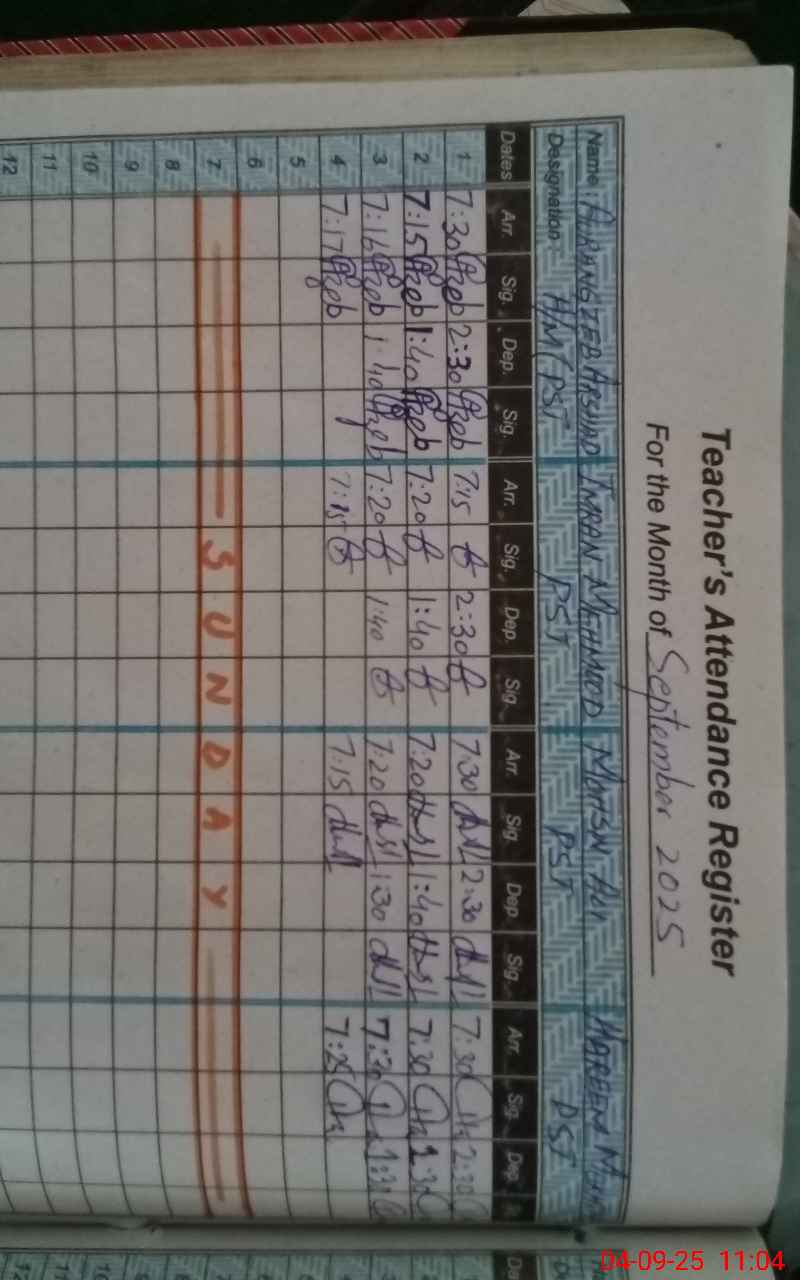 Teacher's Attendance Register
For the Month of September 2025
Name: AURANGZEB ARSHAD IMRAN MEHMOOD MOHSIN ALI
Designation: H/M (PST PST PST PST
Dates Arr. Sig. Dep. Sig. Arr. Sig. Dep. Sig. Arr. Sig. Dep. Sig. Arr. Sig. Dep.
1 7:30 Azeb 2:30 Azeb 7:15 2:30 7:30 2:30 7:30 2:30
2 7:15 Azeb 1:40 Azeb 7:20 1:40 7:20 1:40 7:30
3 7:16 Azeb 1:40 Azeb 7:20 1:40 7:20 1:30 7:30 1:30
4 7:17 Azeb 7:15 7:15 7:25
5
6
7 SUNDAY
8
9
10
11
12
04-09-25 11:04